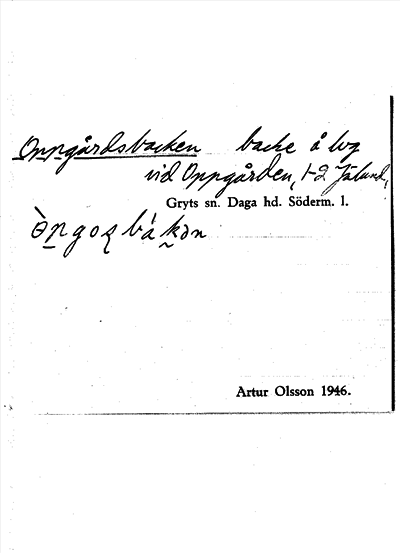 Oppgårdsbacken backe å väg
vid Oppgården, 1-2 Jälund,
Gryts sn. Daga hd. Söderm. l.
Artur Olsson 1946.